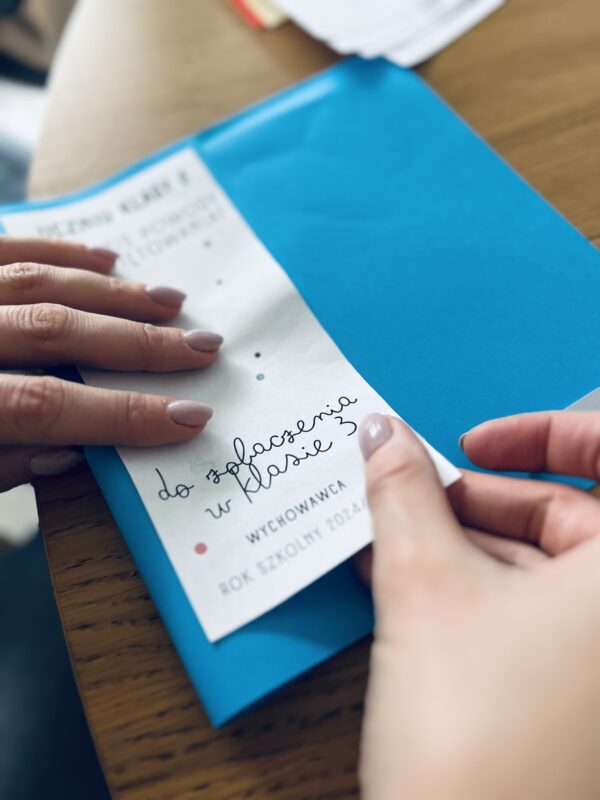 UCZNIU KLASY
do zobaczenia
w klasie 3
WYCHOWAWCA
ROK SZKOLNY 2024